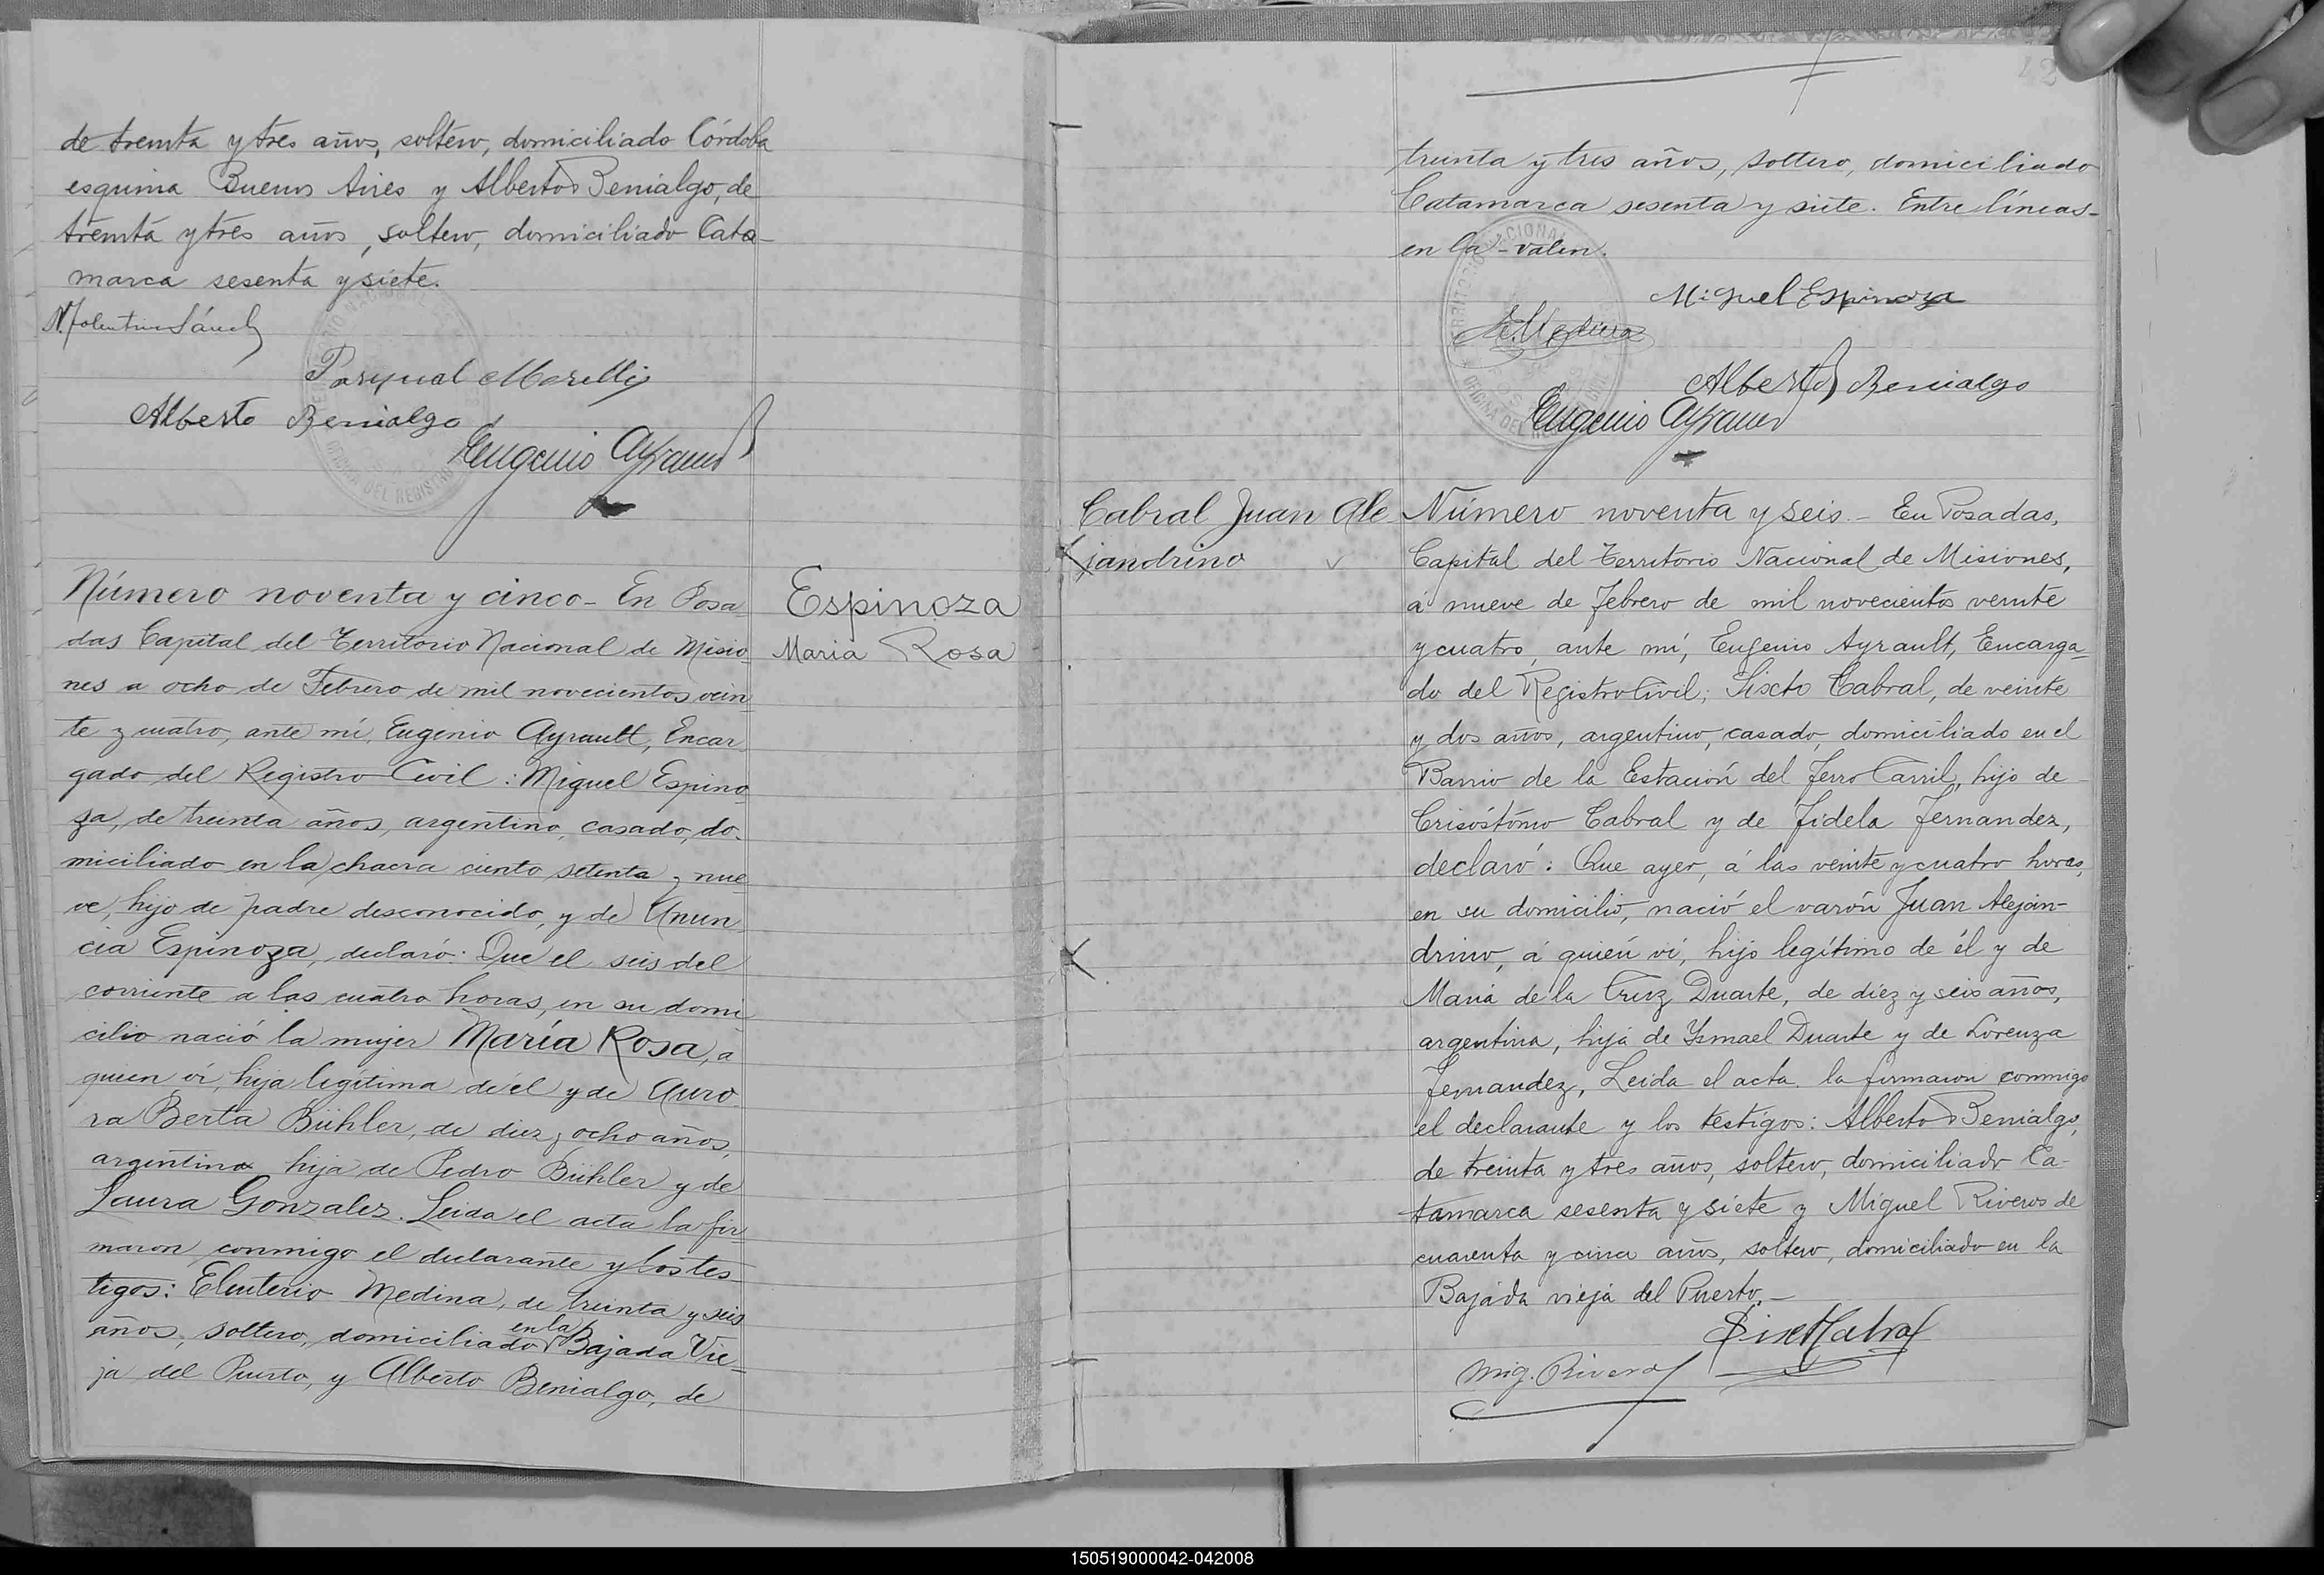 de treinta y tres años, soltero, domiciliado Córdoba
esquina Buenos Aires y Alberto Benialgo, de
treinta y tres años, soltero, domiciliado Cata-
marca sesenta y siete.
Pasqual Morelli
Alberto Benialgo
Eugenio Ayrault
Número noventa y cinco - En Posa
das Capital del Territorio Nacional de Misio
nes a ocho de Febrero de mil novecientos vein
te y cuatro, ante mí, Eugenio Ayrault, Encar
gado del Registro Civil: Miguel Espino
za, de treinta años, argentino, casado, do-
miciliado en la chacra ciento setenta y nue
ve, hijo de padre desconocido, y de Anun
cia Espinoza, declaró: Que el seis del
corriente a las cuatro horas, en su domi
cilio nació la mujer María Rosa, a
quien ví, hija legítima de él y de Auro
ra Berta Bühler, de diez y ocho años,
argentina hija de Pedro Bühler y de
Laura Gonzalez. Leida el acta la fir
maron conmigo el declarante y los tes-
tigos: Eleuterio Medina, de treinta y seis
años, soltero, domiciliado en la Bajada Vie-
ja del Puerto, y Alberto Benialgo, de
Espinoza
Maria Rosa
42
treinta y tres años, soltero, domiciliado
Catamarca sesenta y siete. Entre líneas-
en la - valen.
Miguel Espinoza
E. Medina
Alberto Benialgo
Eugenio Ayrault
Cabral Juan Ale
jandrino
Número noventa y seis. - En Posadas,
Capital del Territorio Nacional de Misiones,
á nueve de Febrero de mil novecientos veinte
y cuatro, ante mí, Eugenio Ayrault, Encarga-
do del Registro Civil; Sixto Cabral, de veinte
y dos años, argentino, casado, domiciliado en el
Barrio de la Estación del Ferro Carril, hijo de
Crisóstomo Cabral y de Fidela Fernandez,
declaró: Que ayer, á las veinte y cuatro horas,
en su domicilio, nació el varón Juan Alejan-
drino, á quién ví, hijo legítimo de él y de
María de la Cruz Duarte, de diez y seis años,
argentina, hija de Ysmael Duarte y de Lorenza
Fernandez, Leida el acta la firmaron conmigo
el declarante y los testigos: Alberto Benialgo,
de treinta y tres años, soltero, domiciliado Ca-
tamarca sesenta y siete y Miguel Riveros de
cuarenta y cinco años, soltero, domiciliado en la
Bajada vieja del Puerto. -
Sixto Cabral
Mig. Riveros
150519000042-042008